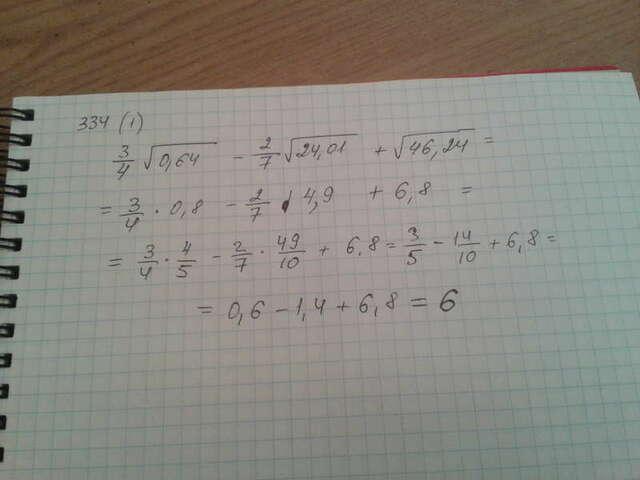 334 (1)
3/4 √0,64 - 2/7 √24,01 + √46,24 =
= 3/4 · 0,8 - 2/7 · 4,9 + 6,8 =
= 3/4 · 4/5 - 2/7 · 49/10 + 6,8 = 3/5 - 14/10 + 6,8 =
= 0,6 - 1,4 + 6,8 = 6